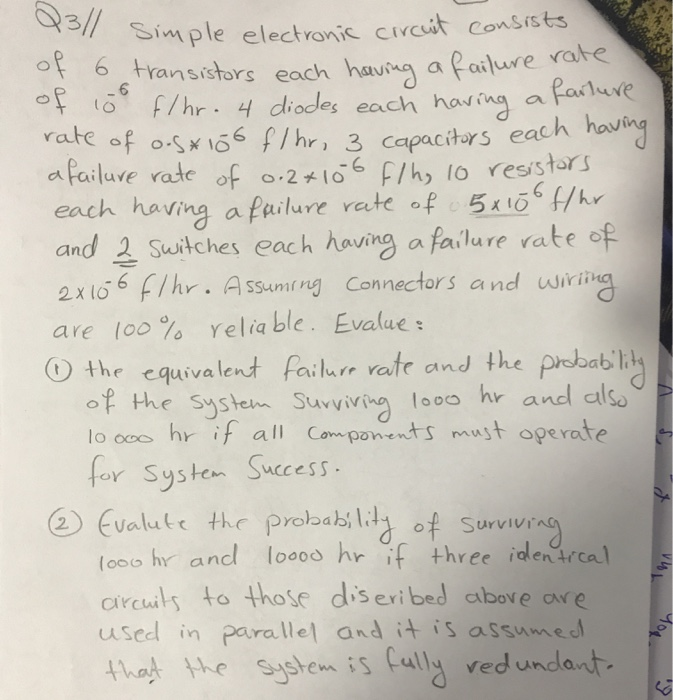 Q3// Simple electronic circuit consists
of 6 transistors each having a failure rate
of 10⁻⁶ f/hr. 4 diodes each having a failure
rate of 0.5*10⁻⁶ f/hr, 3 capacitors each having
a failure rate of 0.2*10⁻⁶ f/h, 10 resistors
each having a failure rate of 5x10⁻⁶ f/hr
and 2 switches each having a failure rate of
2x10⁻⁶ f/hr. Assuming connectors and wiriing
are 100% reliable. Evalue:
① the equivalent failure rate and the probability
of the system surviving 1000 hr and also
10 000 hr if all components must operate
for system success.
② Evalute the probability of surviving
1000 hr and 10000 hr if three identical
circuits to those diseribed above are
used in parallel and it is assumed
that the system is fully redundant.